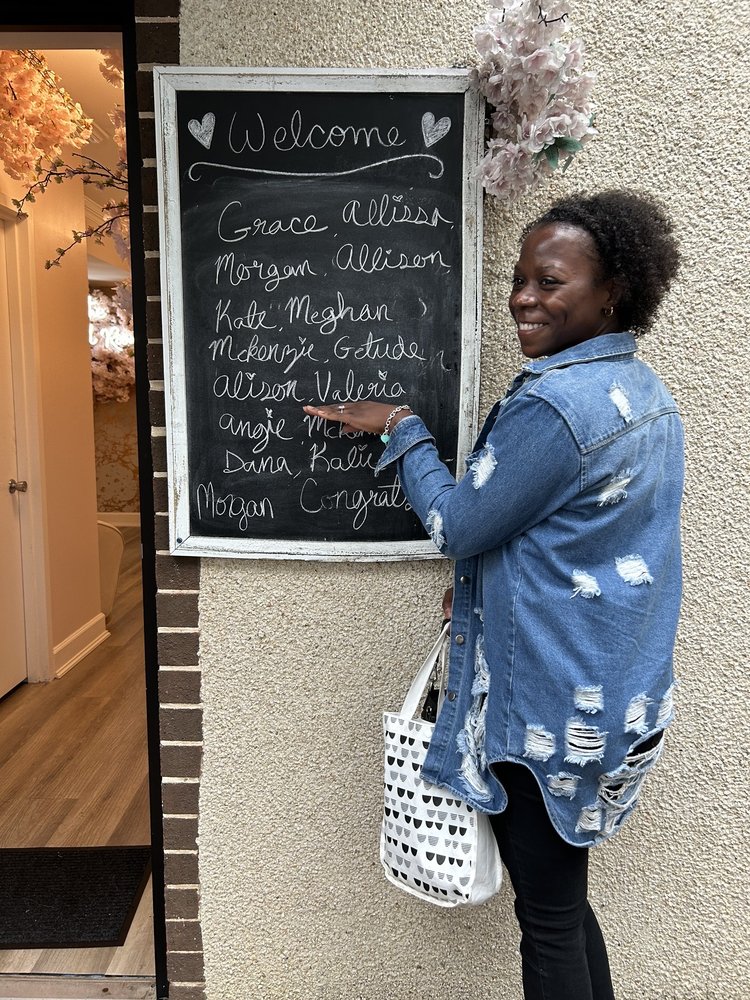 Welcome
Grace, Allison,
Morgan, Allison,
Kate, Meghan
Mckenzie, Getude
Alison, Valeria
Angie
Dana, Kalie
Morgan Congrats